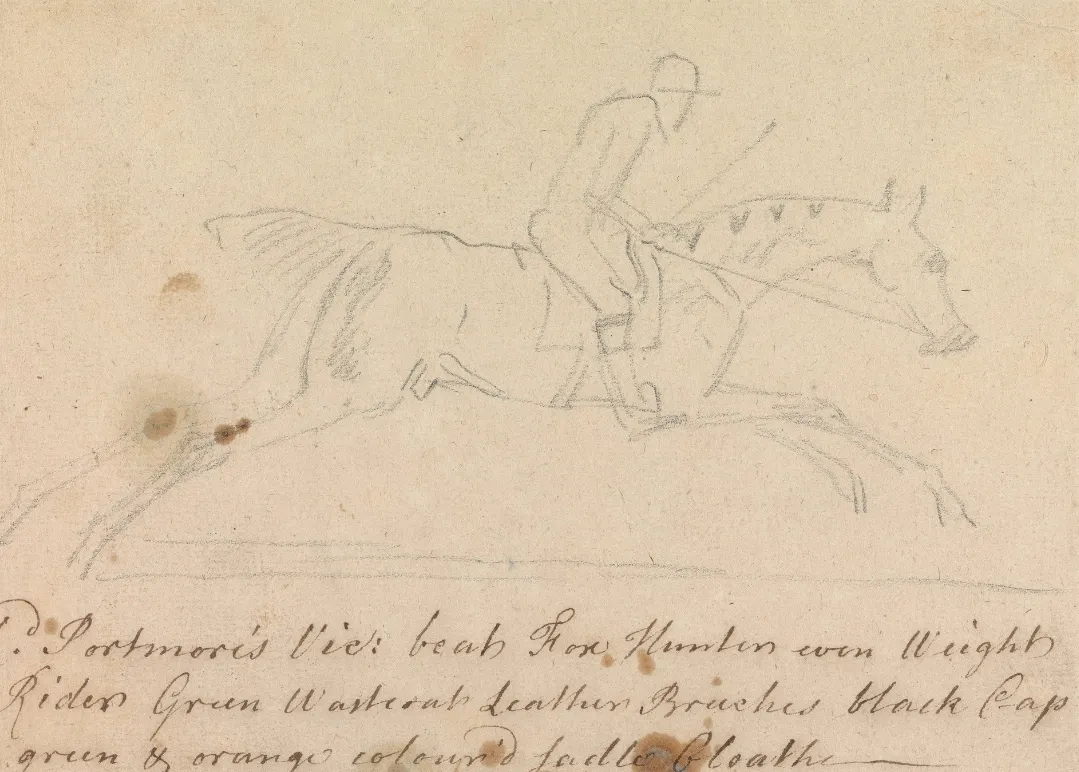 L.d Portmore's Vic: beat Fox Hunter even Weight
Rider Green Wastcoat Leather Breeches black Cap
green & orange colour'd sadle Cloathe